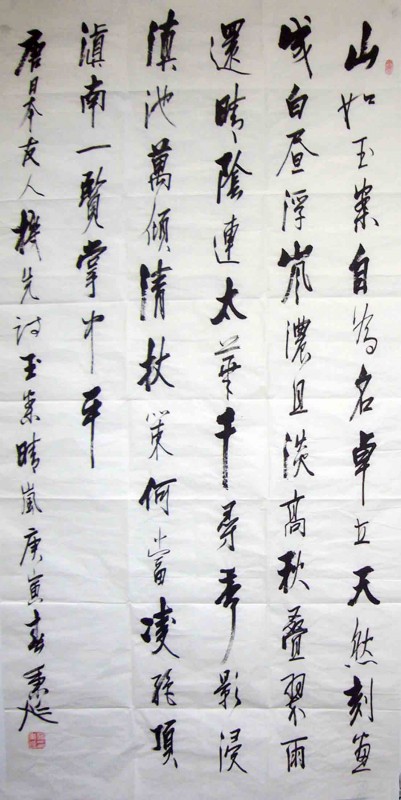 山如玉案自為名卓立天然刻畫
成白昼浮嵐濃且淡高秋叠翠雨
還晴陰連太華千尋秀影浸
滇池萬傾清杖策何當凌絕頂
滇南一覽掌中平
唐日本友人機先詩玉案晴嵐庚寅春